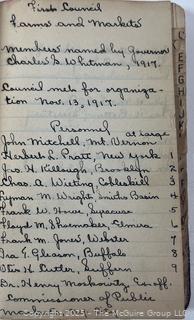 First Council
Farms and Markets
Members named by Governor
Charles S. Whitman, 1917.
Council met for organiza-
tion Nov. 13, 1917.
Personnel
at Large
John Mitchell, Mt. Vernon
Herbert L. Pratt, New York 1
Jas. H. Killough, Brooklyn 2
Chas. A. Wieting, Cobleskill 3
Lyman M. Wright, Smiths Basin 4
Frank W. Howe, Syracuse 5
Floyd M. Shoemaker, Elmira 6
Frank M. Jones, Webster 7
Ira E. Gleason, Buffalo 8
Otis H. Cutler, Suffern 9
Dr. Henry Moskowitz Ex-off.
Commissioner of Public
Markets
C
D
E
F
G
H
I
J
Copyright 2025 - The McGuire Group LLC